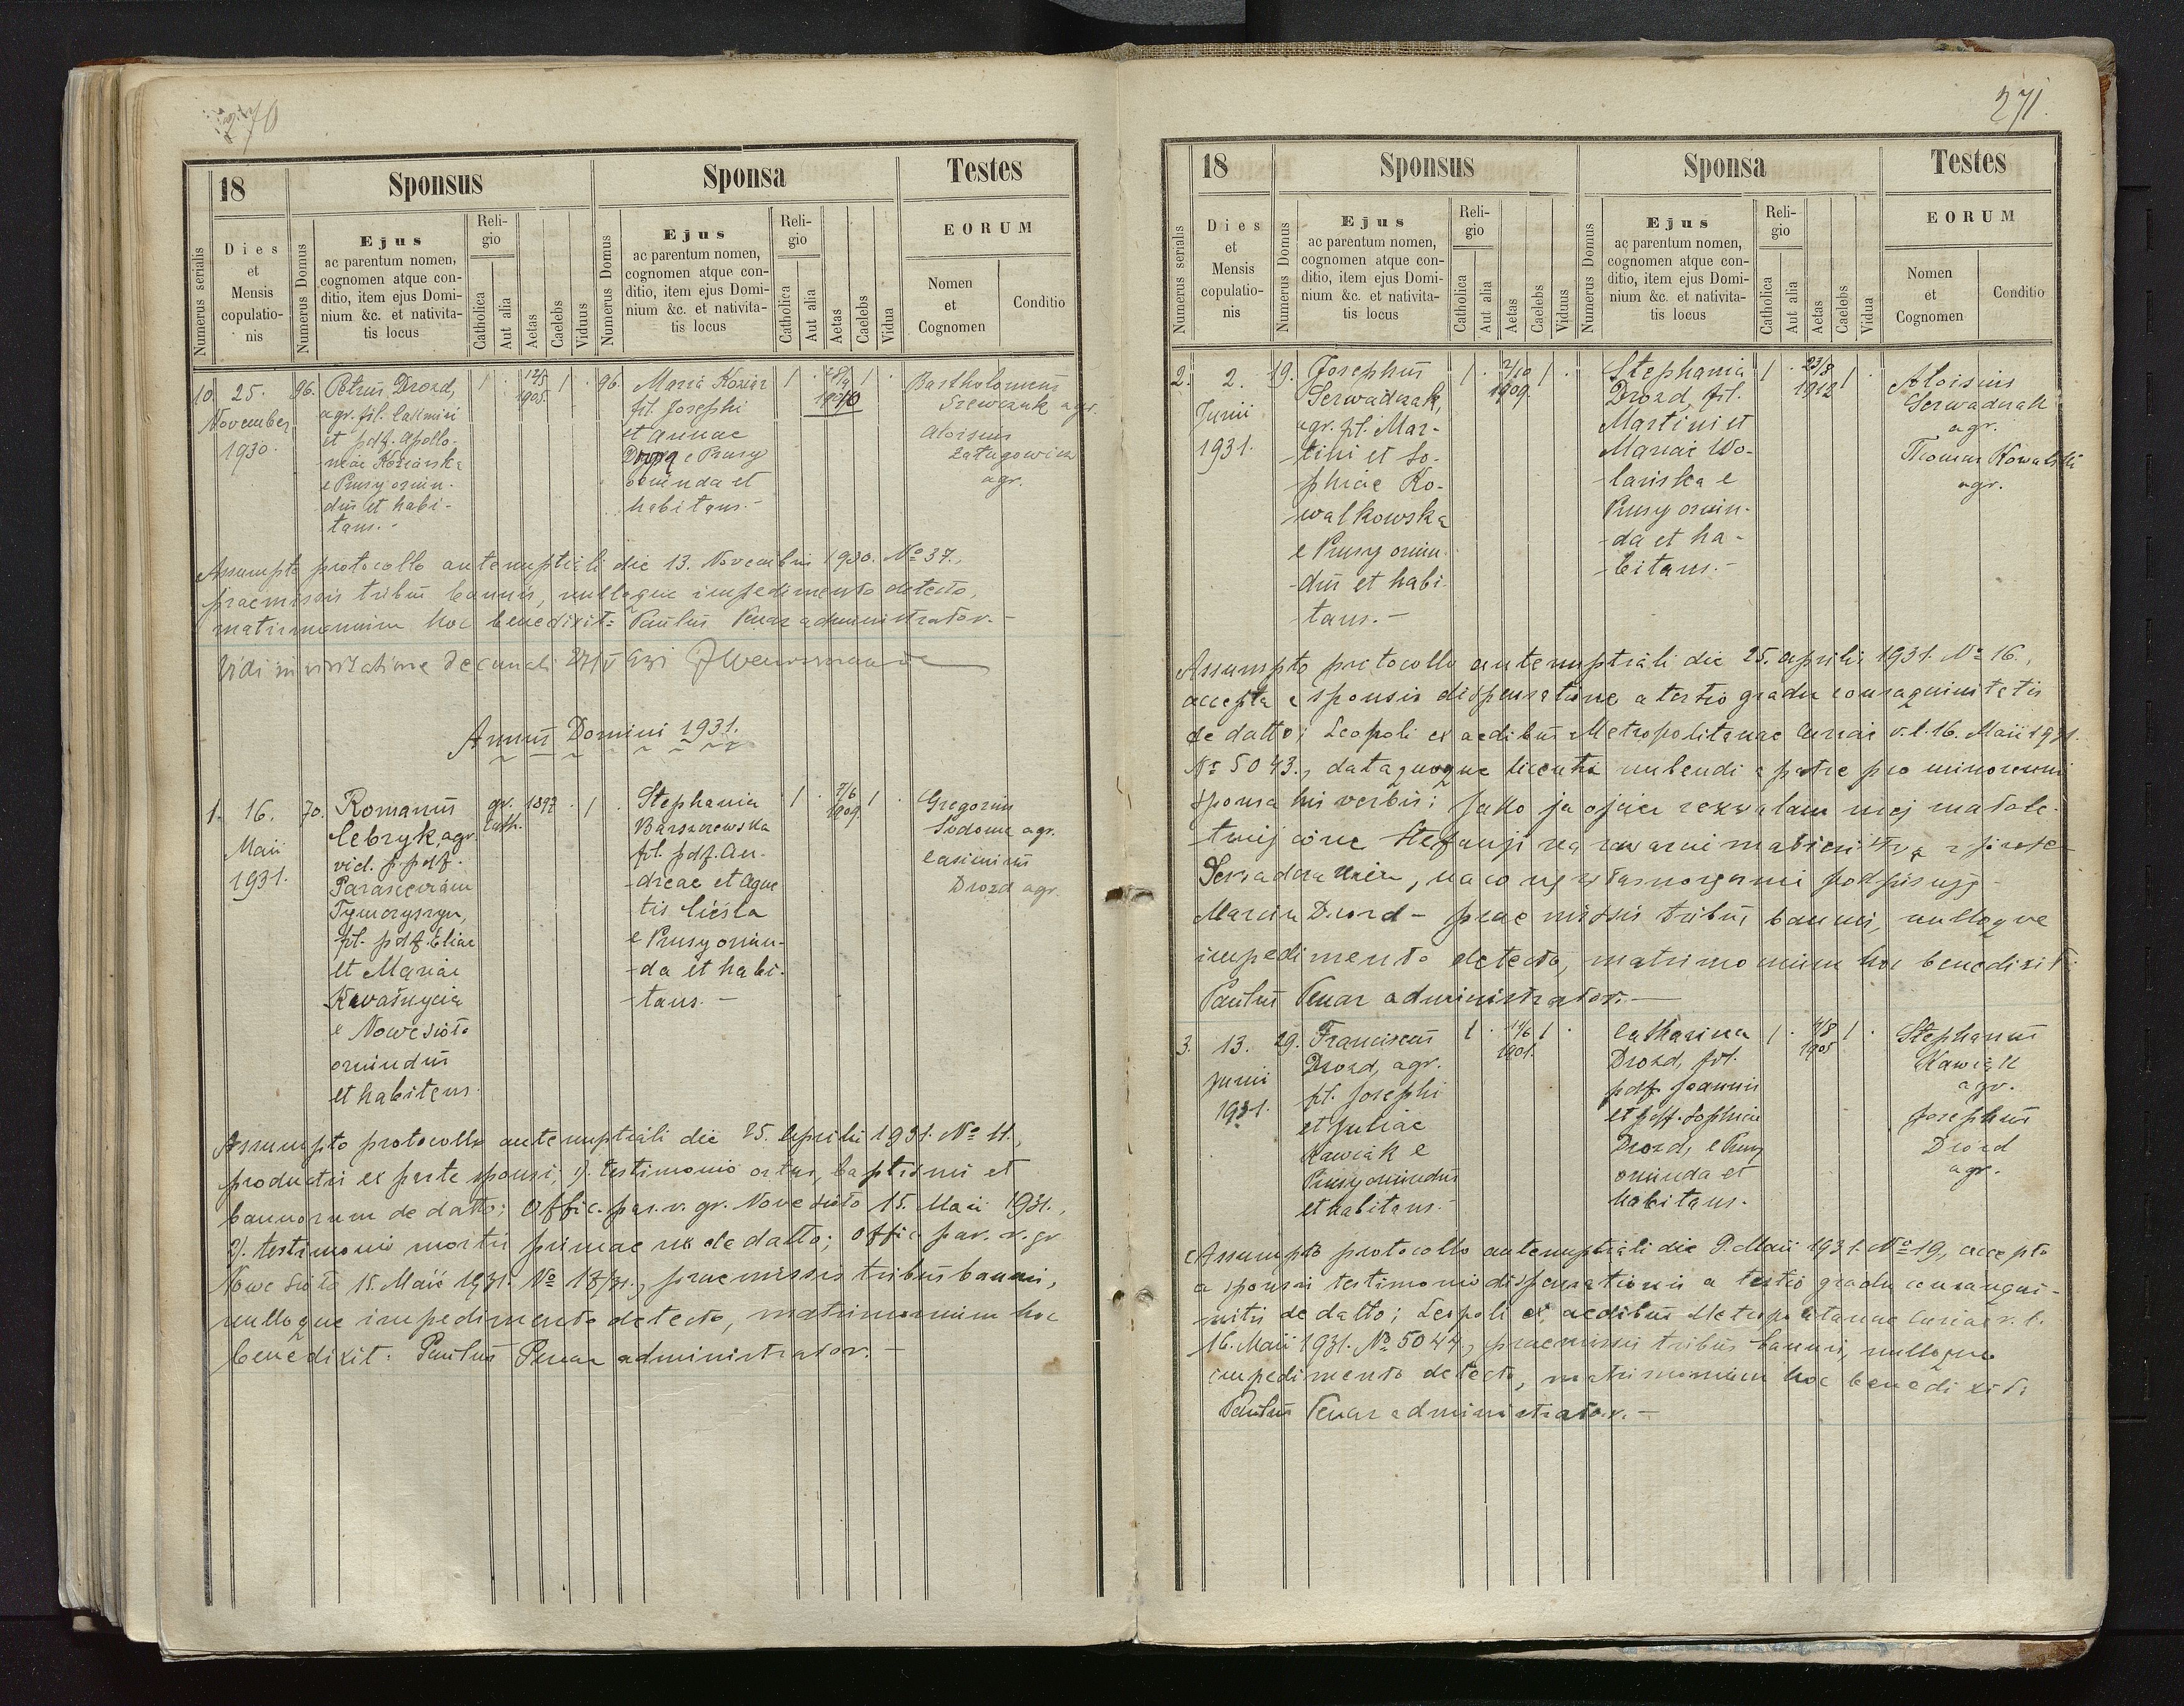 270
18
Sponsus
Sponsa
Testes
Numerus serialis
Dies et Mensis copulationis
Numerus Domus
Ejus
ac parentum nomen,
cognomen atque con-
ditio, item ejus Domi-
nium &c. et nativita-
tis locus
Reli-
gio
Catholica
Aut alia
Aetas
Caelebs
Viduus
Numerus Domus
Ejus
ac parentum nomen,
cognomen atque con-
ditio, item ejus Domi-
nium &c. et nativita-
tis locus
Reli-
gio
Catholica
Aut alia
Aetas
Caelebs
Vidua
EORUM
Nomen
et
Cognomen
Conditio
10
25.
November
1930.
96.
Petrus Drozd,
agr. fil. Casimiri
et pdf. Apollo-
niae Koziarska
e Prusy oriun-
dus et habi-
tans.-
1 . 12/5 1905. 1 .
96.
Maria Koziar
fil. Josephi
et Annae
Drozd e Prusy
oriunda et
habitans.-
1 . 1910 1 .
Bartholomeus
Szewczuk agr.
Aloisius
Zatugowicz
agr.
Assumpto protocollo antenuptiali die 13. Novembris 1930. No 37.,
praemissis tribus bannis, nulloque impedimento detecto,
matrimonium hoc benedixit: Paulus Penar administrator.-
Vidi in visitatione decanali 27/V 931
Annus Domini 1931.
1.
16.
Maii
1931.
70.
Romanus
Cebryk, agr.
vid. p. pdf.
Parascevam
Tymczyszyn,
fil. pdf. Eliae
et Mariae
e Nowesioło
oriundus
et habitans.
gr. cath. 1897 . 1
Stephania
Barszczewska
fil. pdf. An-
dreae et Agne-
tis Cieśla
e Prusy oriun-
da et habi-
tans.-
1 . 7/6 1909. 1 .
Gregorius
Sodoma agr.
Casimirus
Drozd agr.
Assumpto protocollo antenuptiali die 25. Aprilis 1931. No 11.,
productis ex parte sponsi; 1). testimonio ortus, baptismi et
bannorum de datto; Offic. par. r. gr. Nowesioło 15. Maii 1931.,
2). testimonio mortis primae ux. de datto; Offic. par. r. gr.
Nowesioło 15. Maii 1931. No 18/31., praemissis tribus bannis,
nulloque impedimento detecto, matrimonium hoc
benedixit: Paulus Penar administrator.-
271.
18
Sponsus
Sponsa
Testes
Numerus serialis
Dies
et
Mensis
copulatio-
nis
Numerus Domus
Ejus
ac parentum nomen,
cognomen atque con-
ditio, item ejus Domi-
nium &c. et nativita-
tis locus
Reli-
gio
Catholica
Aut alia
Aetas
Caelebs
Viduus
Numerus Domus
Ejus
ac parentum nomen,
cognomen atque con-
ditio, item ejus Domi-
nium &c. et nativita-
tis locus
Reli-
gio
Catholica
Aut alia
Aetas
Caelebs
Vidua
EORUM
Nomen
et
Cognomen
Conditio
2.
2.
Junii
1931.
19.
Josephus
Serwadczak,
agr. fil. Mar-
tini et So-
phiae Ko-
walkowska
e Prusy oriun-
dus et habi-
tans.-
1 . 2/10 1909. 1 .
Stephania
Drozd, fil.
Martini et
Mariae Wo-
lańska e
Prusy oriun-
da et ha-
bitans.-
1 . 23/8 1912 1 .
Aloisius
Serwadczak
agr.
Thomas Kowalski
agr.
Assumpto protocollo antenuptiali die 25. Aprilis 1931. No 16.,
accepta a sponsis dispensatione a tertio gradu consaquinitatis
de datto; Leopoli ex aedibus Metropolitanae Curiae r. l. 16. Maii 1931.
No 5043., dataquoque licentia nubendi a patre pro minorenni
sponsa his verbis: Jako ja ojciec zezwalam mej małole-
tniej córce Stefanji na zawarcie małżeństwa z Józefem
Serwadczakiem, na co się własnoręcznie podpisuję -
Marcin Drozd - praemissis tribus bannis, nulloque
impedimento detecto, matrimonium hoc benedixit:
Paulus Penar administrator.-
3.
13.
Junii
1931.
29.
Franciscus
Drozd, agr.
fil. Josephi
et Juliae
Kawiak e
Prusy oriundus
et habitans.-
1 . 14/6 1901. 1 .
Catharina
Drozd, fil.
pdf. Joannis
et pdf. Sophiae
Drozd, e Prusy
oriunda et
habitans.-
1 . 4/8 1905 1 .
Stephanus
Kawiak
agr.
Josephus
Drozd
agr.
Assumpto protocollo antenuptiali die 9. Maii 1931. No 19, accepto
a sponsis testimonio dispensationis a tertio gradu consangui-
nitis de datto; Leopoli ex aedibus Metropolitanae Curiae r. l.
16. Maii 1931. No 5044., praemissis tribus bannis, nulloque
impedimento detecto, matrimonium hoc benedixit:
Paulus Penar administrator.-